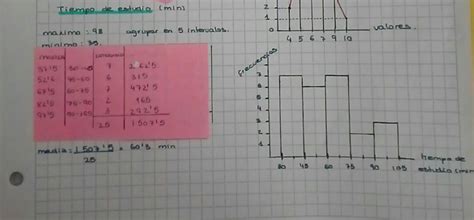 Tiempo de estudio (min)
maximo: 98 agrupar en 5 intervalos.
minimo:
37'5 30-45 7 262'5
52'5 45-60 6 315
67'5 60-75 7 472'5
82'5 75-90 2 165
97'5 90-105 3 292'5
25 1507'5
media: 1507'5
25
= min
2
1
4 5 6 7 8 9 10
valores.
frecuencias
7
6
5
4
3
2
1
30 45 60 75 90 105
tiempo de
estudio (min